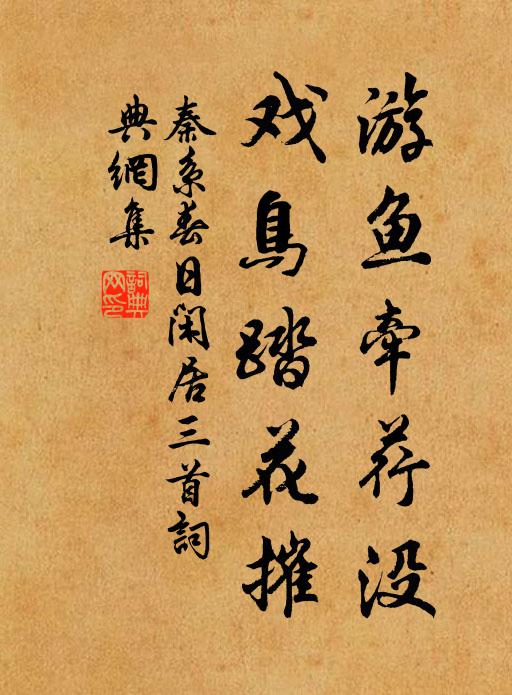 游鱼牵荇没
戏鸟踏花摧
秦系春日闲居三首詞
典網集
詞典网印